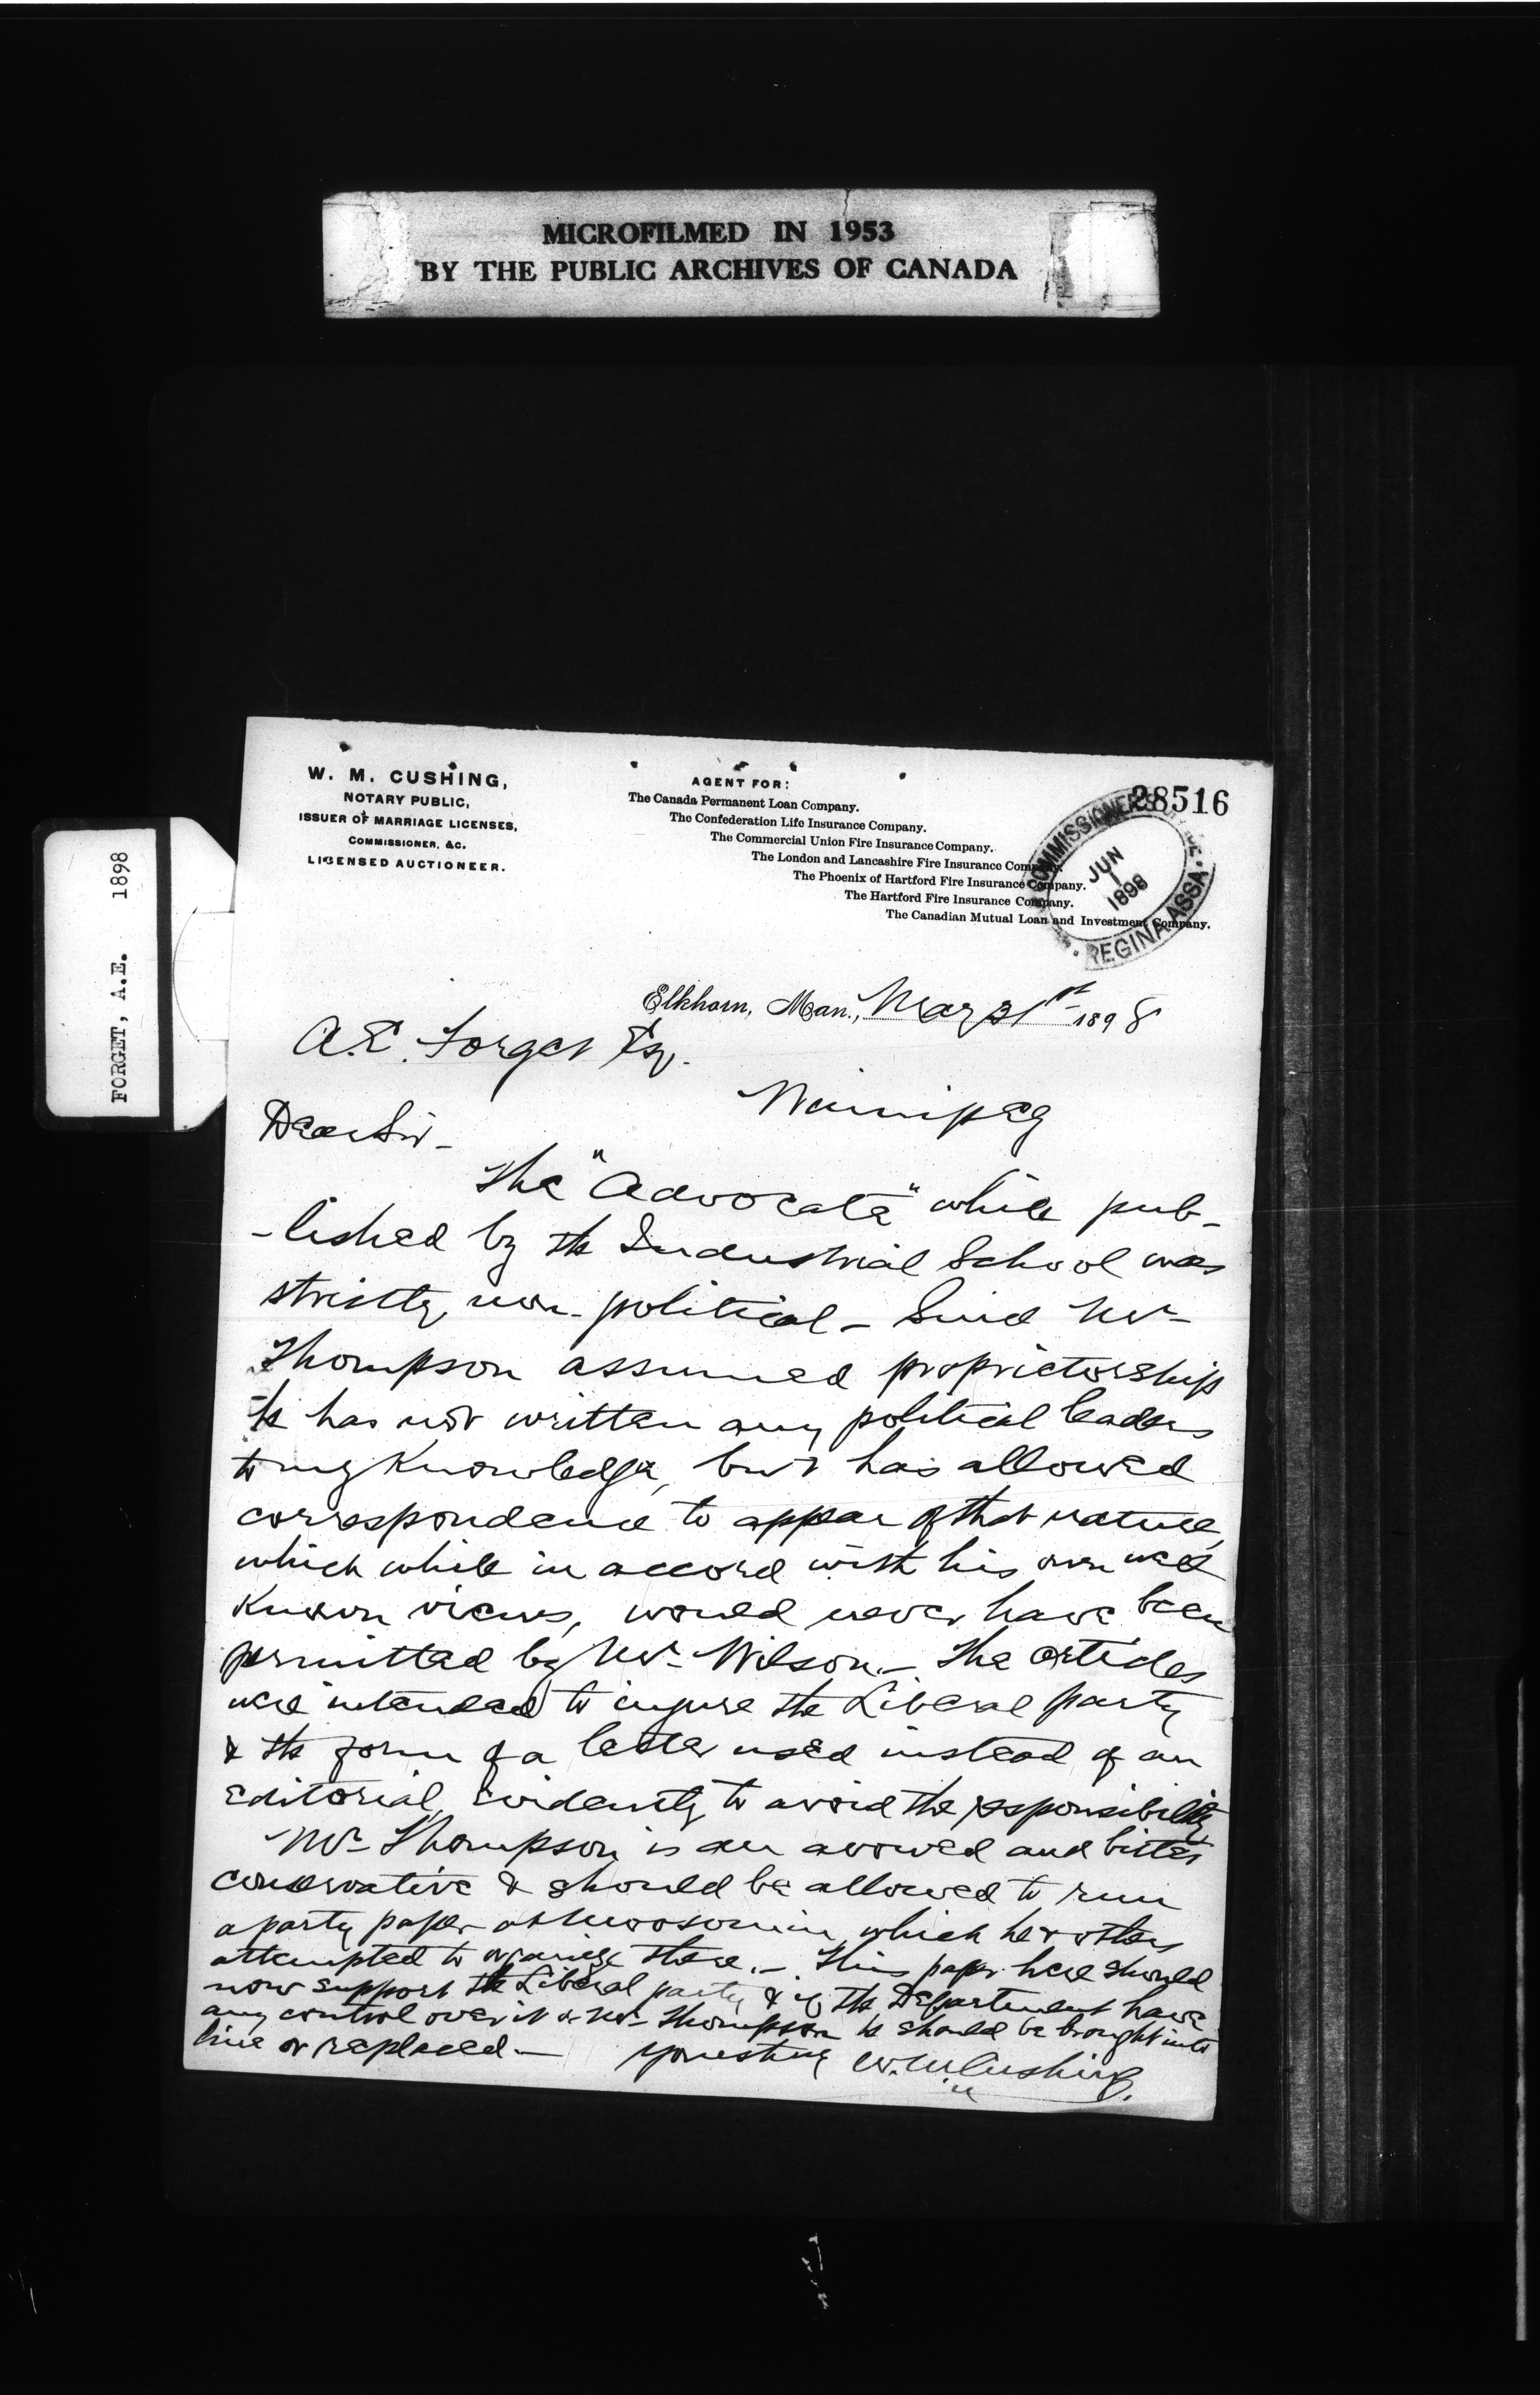 MICROFILMED IN 1953
BY THE PUBLIC ARCHIVES OF CANADA
FORGET, A.E. 1898
W. M. CUSHING,
NOTARY PUBLIC,
ISSUER OF MARRIAGE LICENSES,
COMMISSIONER, &C.
LICENSED AUCTIONEER.
AGENT FOR:
The Canada Permanent Loan Company.
The Confederation Life Insurance Company.
The Commercial Union Fire Insurance Company.
The London and Lancashire Fire Insurance Company.
The Phoenix of Hartford Fire Insurance Company.
The Hartford Fire Insurance Company.
The Canadian Mutual Loan and Investment Company.
28516
COMMISSIONER'S
JUN
1
1898
REGINA. ASSA.
Elkhorn, Man., May 31st 1898
A.E. Forget Esq.
Winnipeg
Dear Sir-
The "Advocate" while pub-
-lished by the Industrial School was
strictly non-political - Since Mr
Thompson assumed proprietorship
he has not written any political leaders
to my knowledge, but has allowed
correspondence to appear of that nature,
which while in accord with his own well
known views, would never have been
permitted by Mr Wilson. - The articles
were intended to injure the Liberal party
& the form of a letter used instead of an
editorial, evidently to avoid the responsibility
Mr Thompson is an avowed and bitter
conservative & should be allowed to run
a party paper at Moosomin which he & others
attempted to organize there. - This paper here should
now support the Liberal party & if the Department have
any control over it or Mr Thompson he should be brought into
line or replaced - Yours truly W. M. Cushing.